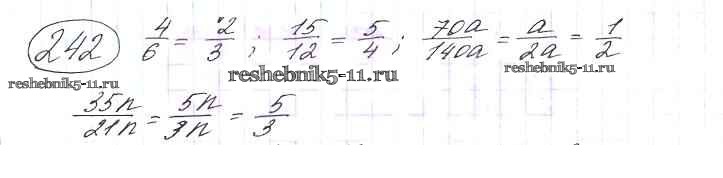 242 4/6 = 2/3 ; 15/12 = 5/4 ; 70a/140a = a/2a = 1/2
reshebnik5-11.ru reshebnik5-11.ru reshebnik5-11.ru
35n/21n = 5n/3n = 5/3